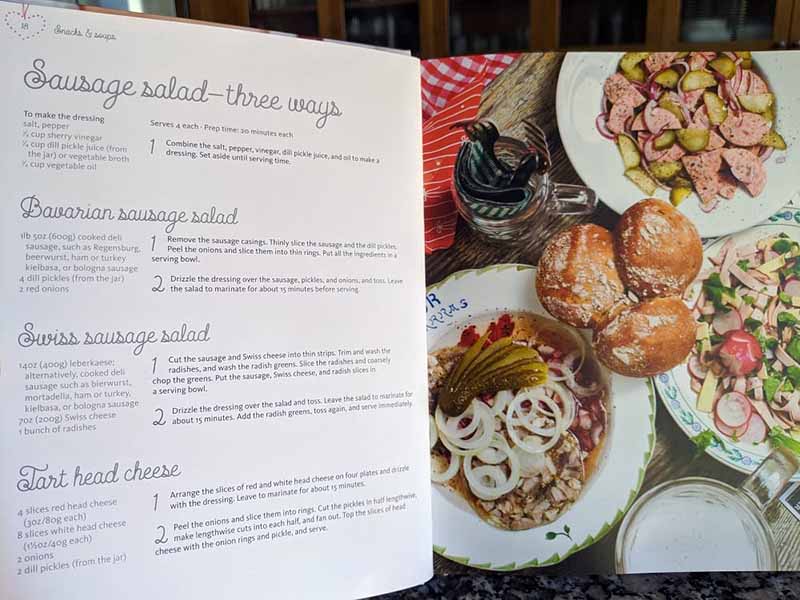 18
Snacks & soups
Sausage salad—three ways
To make the dressing
salt, pepper
¼ cup sherry vinegar
¼ cup dill pickle juice (from
the jar) or vegetable broth
¼ cup vegetable oil
Serves 4 each · Prep time: 20 minutes each
1 Combine the salt, pepper, vinegar, dill pickle juice, and oil to make a
dressing. Set aside until serving time.
Bavarian sausage salad
1lb 5oz (600g) cooked deli
sausage, such as Regensburg,
beerwurst, ham or turkey
kielbasa, or bologna sausage
4 dill pickles (from the jar)
2 red onions
1 Remove the sausage casings. Thinly slice the sausage and the dill pickles.
Peel the onions and slice them into thin rings. Put all the ingredients in a
serving bowl.
2 Drizzle the dressing over the sausage, pickles, and onions, and toss. Leave
the salad to marinate for about 15 minutes before serving.
Swiss sausage salad
14oz (400g) leberkaese;
alternatively, cooked deli
sausage such as bierwurst,
mortadella, ham or turkey,
kielbasa, or bologna sausage
7oz (200g) Swiss cheese
1 bunch of radishes
1 Cut the sausage and Swiss cheese into thin strips. Trim and wash the
radishes, and wash the radish greens. Slice the radishes and coarsely
chop the greens. Put the sausage, Swiss cheese, and radish slices in
a serving bowl.
2 Drizzle the dressing over the salad and toss. Leave the salad to marinate for
about 15 minutes. Add the radish greens, toss again, and serve immediately.
Tart head cheese
4 slices red head cheese
(3oz/80g each)
8 slices white head cheese
(1½oz/40g each)
2 onions
2 dill pickles (from the jar)
1 Arrange the slices of red and white head cheese on four plates and drizzle
with the dressing. Leave to marinate for about 15 minutes.
2 Peel the onions and slice them into rings. Cut the pickles in half lengthwise,
make lengthwise cuts into each half, and fan out. Top the slices of head
cheese with the onion rings and pickle, and serve.